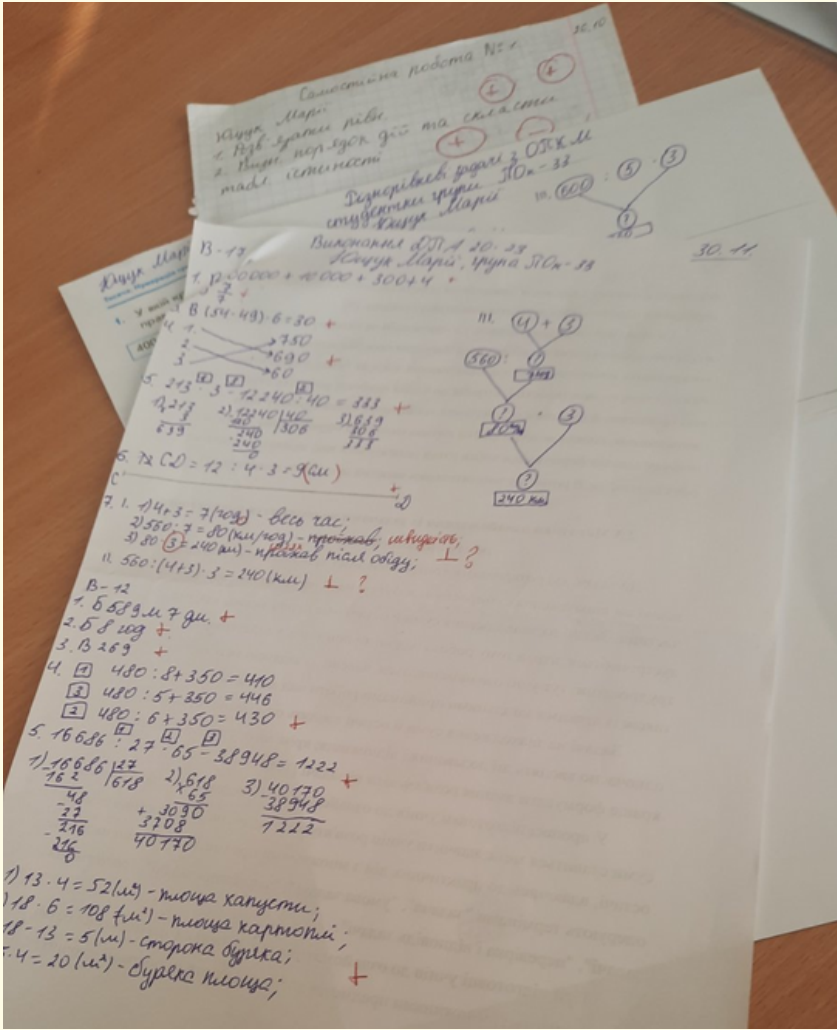 26.10
Самостійна робота №1
Ющук Марії
1. Розв'язати рівн.
2. Визн. порядок дій та скласти
табл. істинності
Різнорівневі задачі з ОПКМ
студентки групи ПОп-33
Ющук Марії
III. 600 : 5 · 3
?
Ющук Марі
1. У
400
В-17
Виконання ДПА 20-23
30.11.
Ющук Марії, група ПОп-33
0000 + 10000 + 300+4
3. В (54-49)·6=30 +
4. 1
750
2
690 +
3
60
5. 213 · 3 - 12240 : 40 = 333 +
1) 213
3
639
2) 12240 | 40
240 | 306
240
0
3) 639
306
333
6. CD = 12 : 4 · 3 = 9(см)
С
D
+
7. I. 1) 4+3=7(год) - весь час;
2) 560:7=80(км/год) - проїхав, швидкість;
3) 80·3=240(км) - проїхав після обіду; ⊥ ?
II. 560:(4+3)·3=240(км) ⊥ ?
III. 4 + 3
560 : ?
? · 3
?
240 км
В-12
1. Б 589м 7 дм. +
2. Б 8 год +
3. В 269 +
4. 1 480:8+350=410
3 480:5+350=446
2 480:6+350=430 +
5. 16686 : 27 · 65 - 38948 = 1222
1 2 3
1) 16686 | 27
162 | 618
48
27
216
216
0
2) 618
× 65
+ 3090
3708
40170
3) 40170
38948
1222
+
1) 13·4=52(м²) - площа капусти;
) 18·6=108(м²) - площа картоплі;
18-13=5(м) - сторона буряка;
·4=20(м²) - буряка площа; +